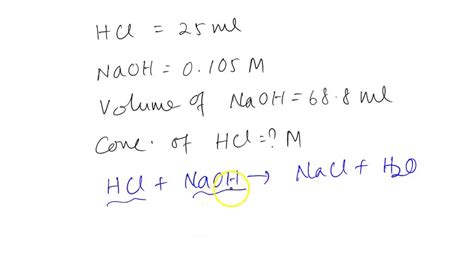 HCl = 25 ml
NaOH = 0.105 M
Volume of NaOH = 68.8 ml
Conc. of HCl = ? M
HCl + NaOH → NaCl + H2O